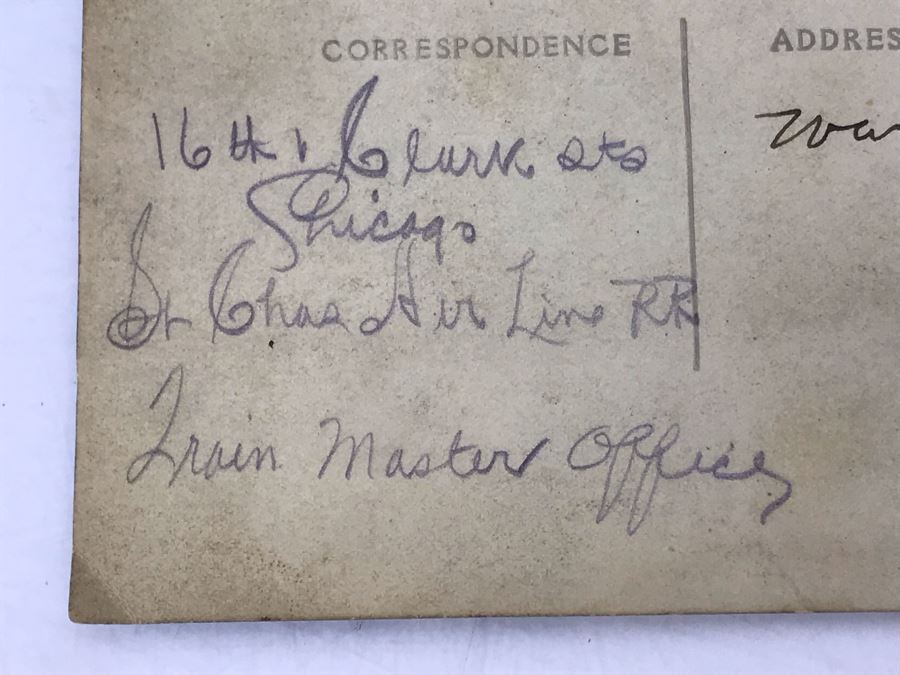 CORRESPONDENCE
ADDRES
16th & Clark sts
Chicago
St Chas Air Line RR
Train Master Office